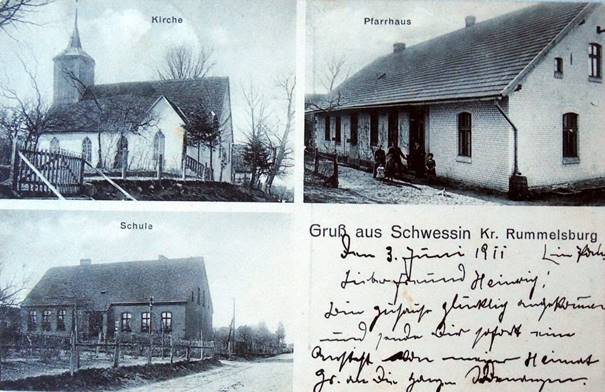 Kirche
Pfarrhaus
Schule
Gruß aus Schwessin Kr. Rummelsburg
Den 3. Juni 1911
Lieber Freund Heinrich!
Bin zuhause glücklig angekommen
und sende Dir sofort eine
Ansicht von meiner Heimat
Gr. an die ganze